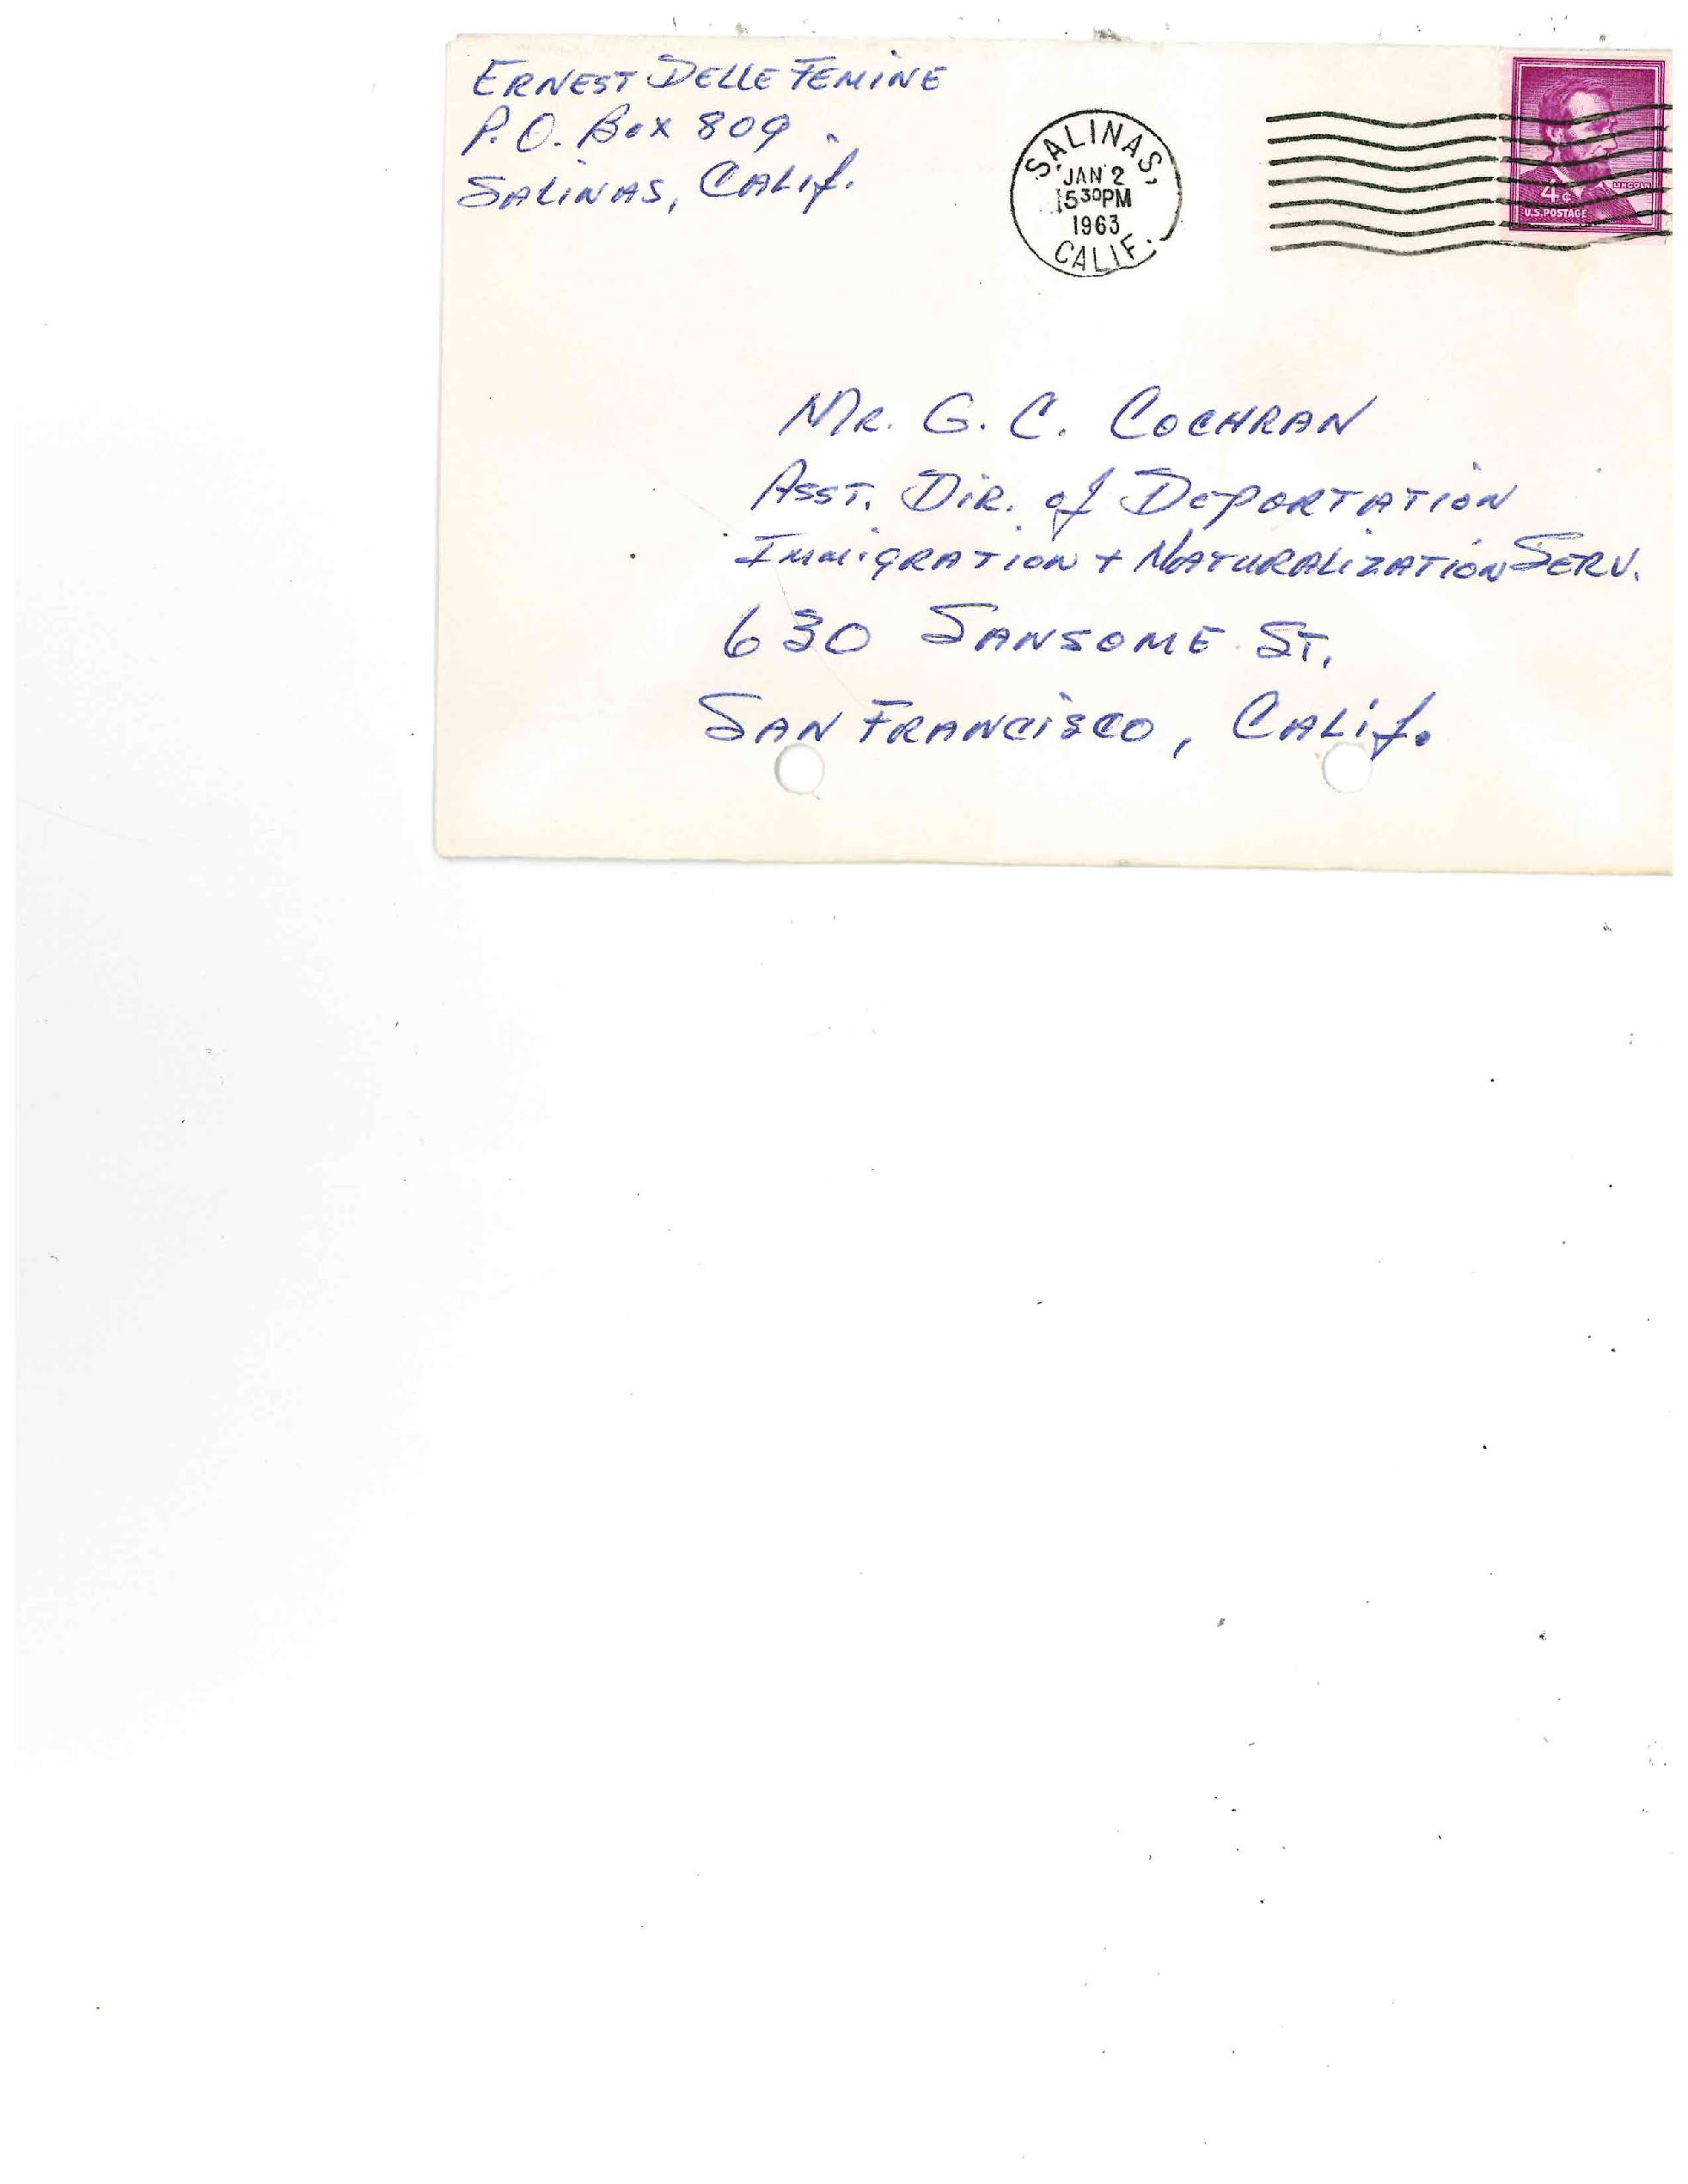 ERNEST DELLE FEMINE
P.O. Box 809
SALINAS, CALif.
SALINAS,
JAN 2
530PM
1963
CALIF.
4¢
LINCOLN
U.S.POSTAGE
MR. G. C. COCHRAN
ASST. DiR. of DEPORTATION
IMMiGRATION + NATURALIZATION SERV.
630 SANSOME ST.
SAN FRANCISCO, CALif.